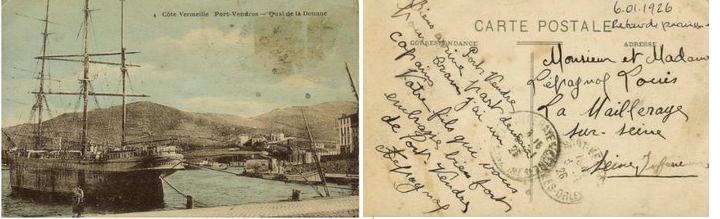 4 Côte Vermeille Port-Vendres — Quai de la Douane
6.01.1926
CARTE POSTALE
CORRESPONDANCE
ADRESSE
Port Vendre
Biens arrivé
part demain
Oran j'ai un
capaine
Votre fils qui vous
embrasse bien fort
de Port Vendres
Lepagnol
Monsieur et Madame
Lepagnol Louis
La Mailleraye
sur-seine
Seine Inferieure